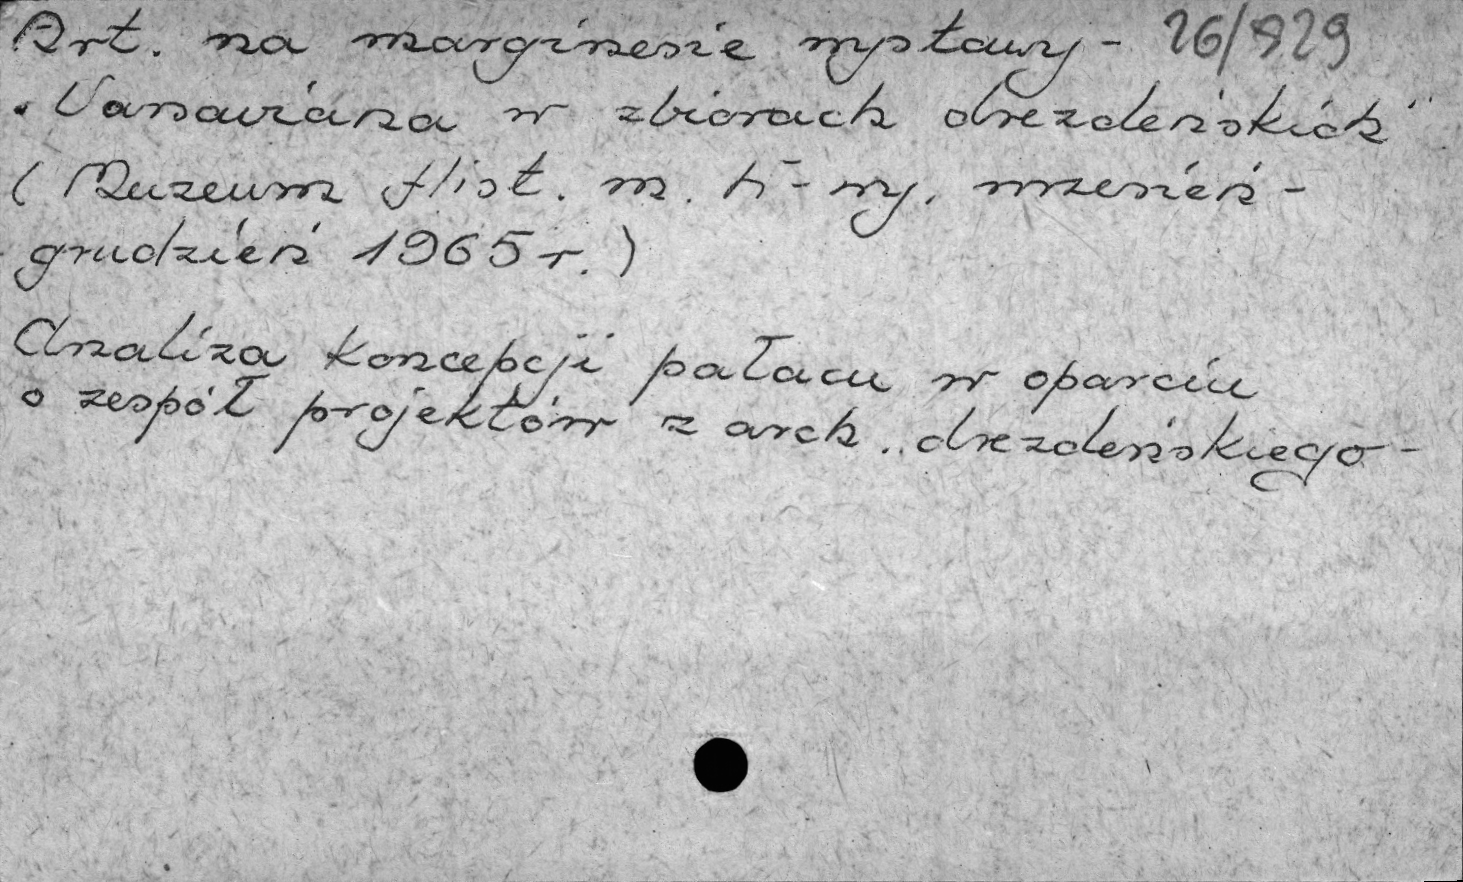 Art. na marginesie wystawy - 26/829
"Varsaviana w zbiorach drezdeńskich"
(Muzeum Hist. m. W-wy, wrzesień -
grudzień 1965 r.)
Analiza koncepcji pałacu w oparciu
o zespół projektów z arch. drezdeńskiego -